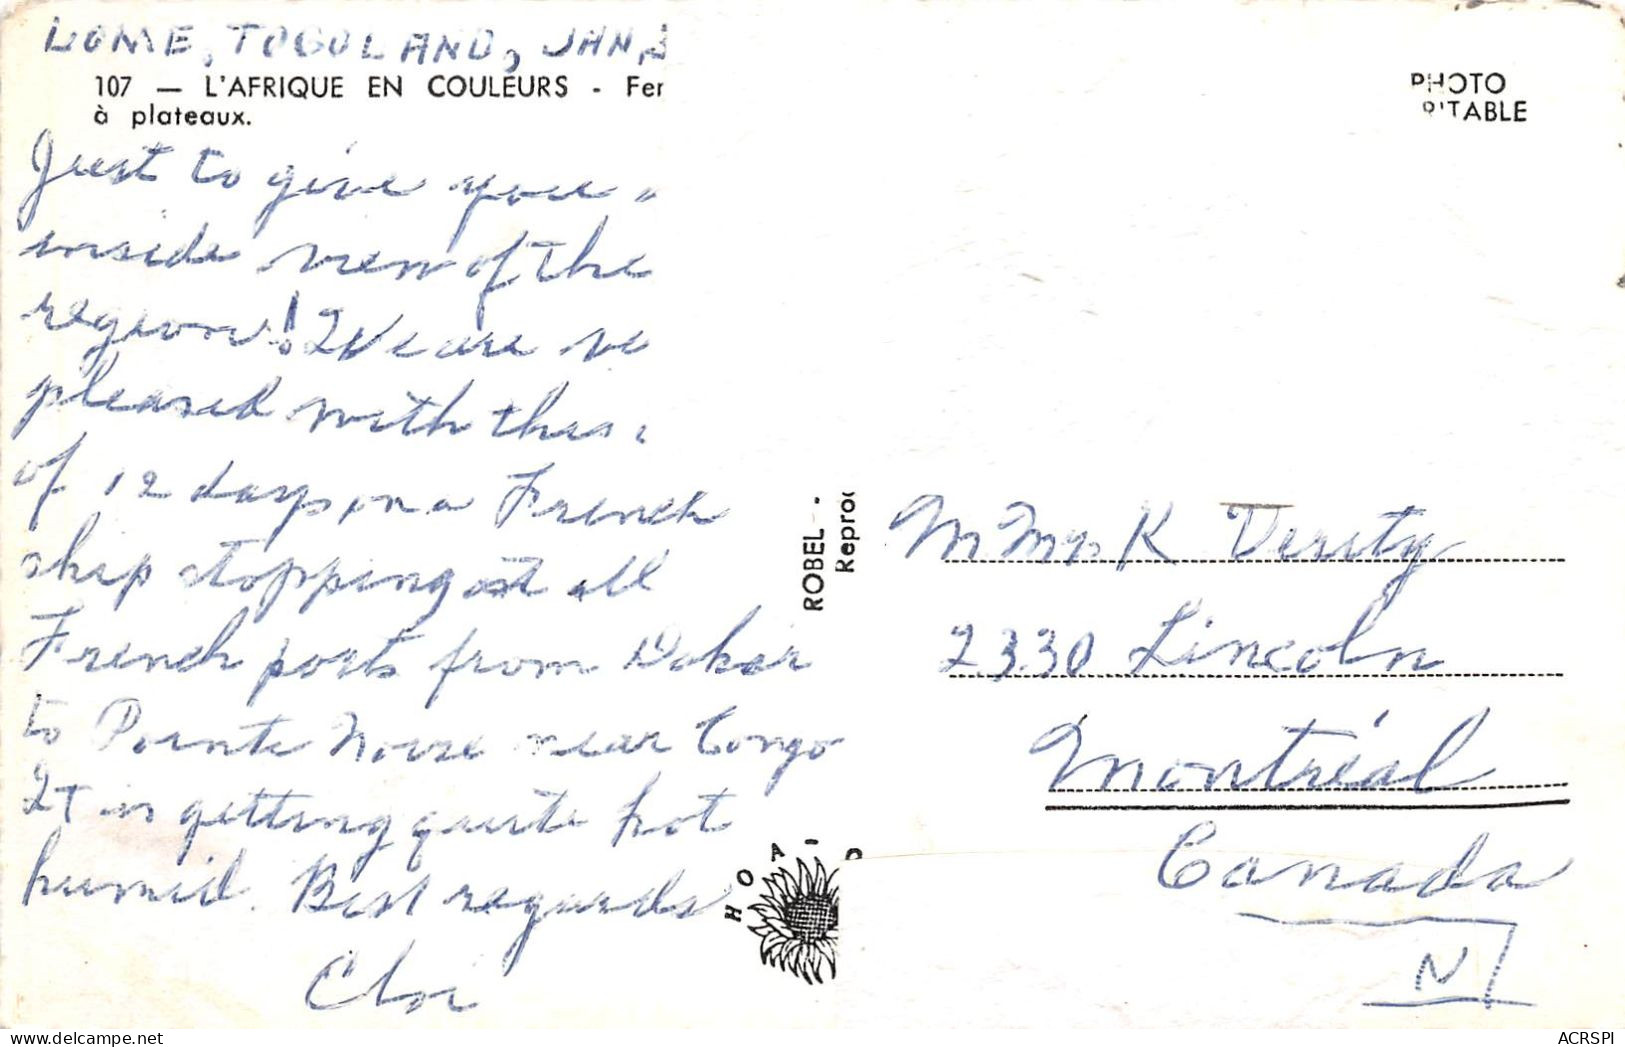 LOME, TOGOLAND, JAN,
107 — L'AFRIQUE EN COULEURS - Fe
à plateaux.
Just to give you
inside view of the
region! We are ve
pleased with this
of 12 days on a French
ship stopping at all
French ports from Dakar
to Pointe Noire near Congo
It is getting quite hot
humid. Best regards
PHOTO
ITABLE
ROBEL -
Repro
HOA
M Mrs K Verity
2330 Lincoln
Montréal
Canada
N
ACRSPI